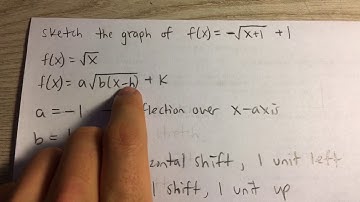 sketch the graph of f(x) = -√(x+1) + 1
f(x) = √x
f(x) = a√(b(x-h)) + K
a = -1 over x-axis
b = 1 stretch
shift, 1 unit left
shift, 1 unit up